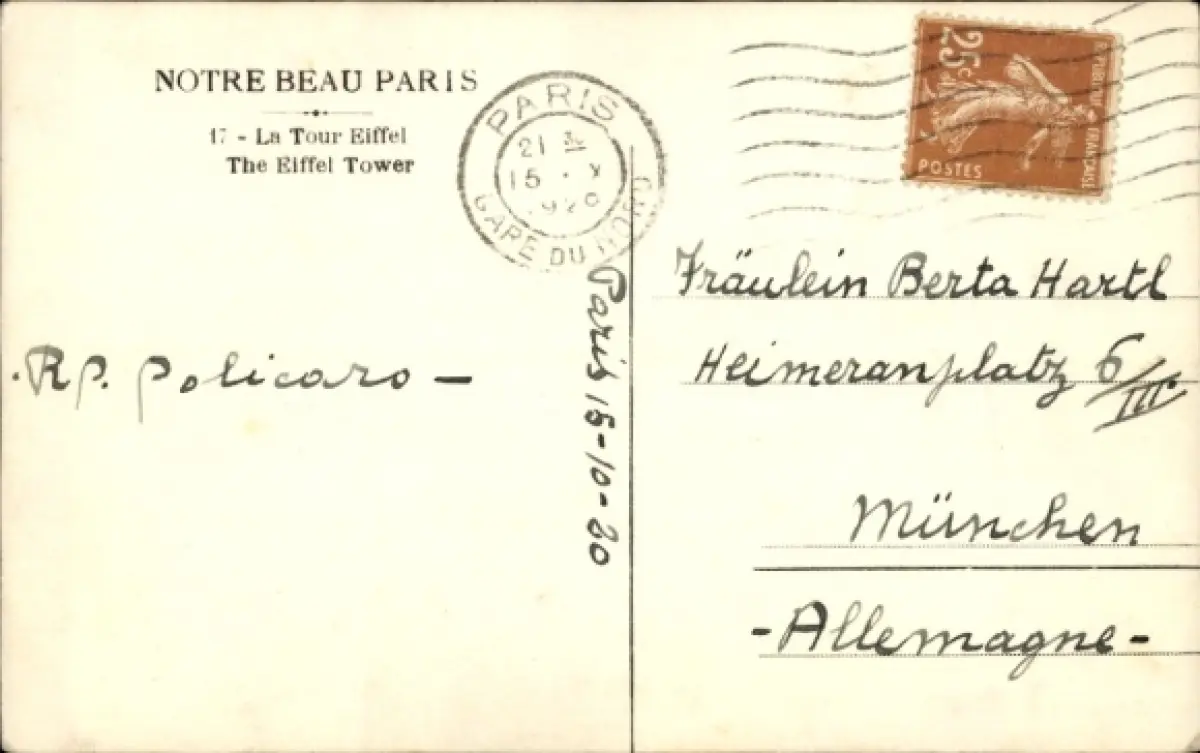 NOTRE BEAU PARIS
17 - La Tour Eiffel
The Eiffel Tower
PARIS
21 30
15 . X
GARE DU NORD
25c
POSTES
REPUBLIQUE FRANÇAISE
RP. Policaro —
Paris 15-10-20
Fräulein Berta Hartl
Heimeranplatz 6/III.
München
-Allemagne-